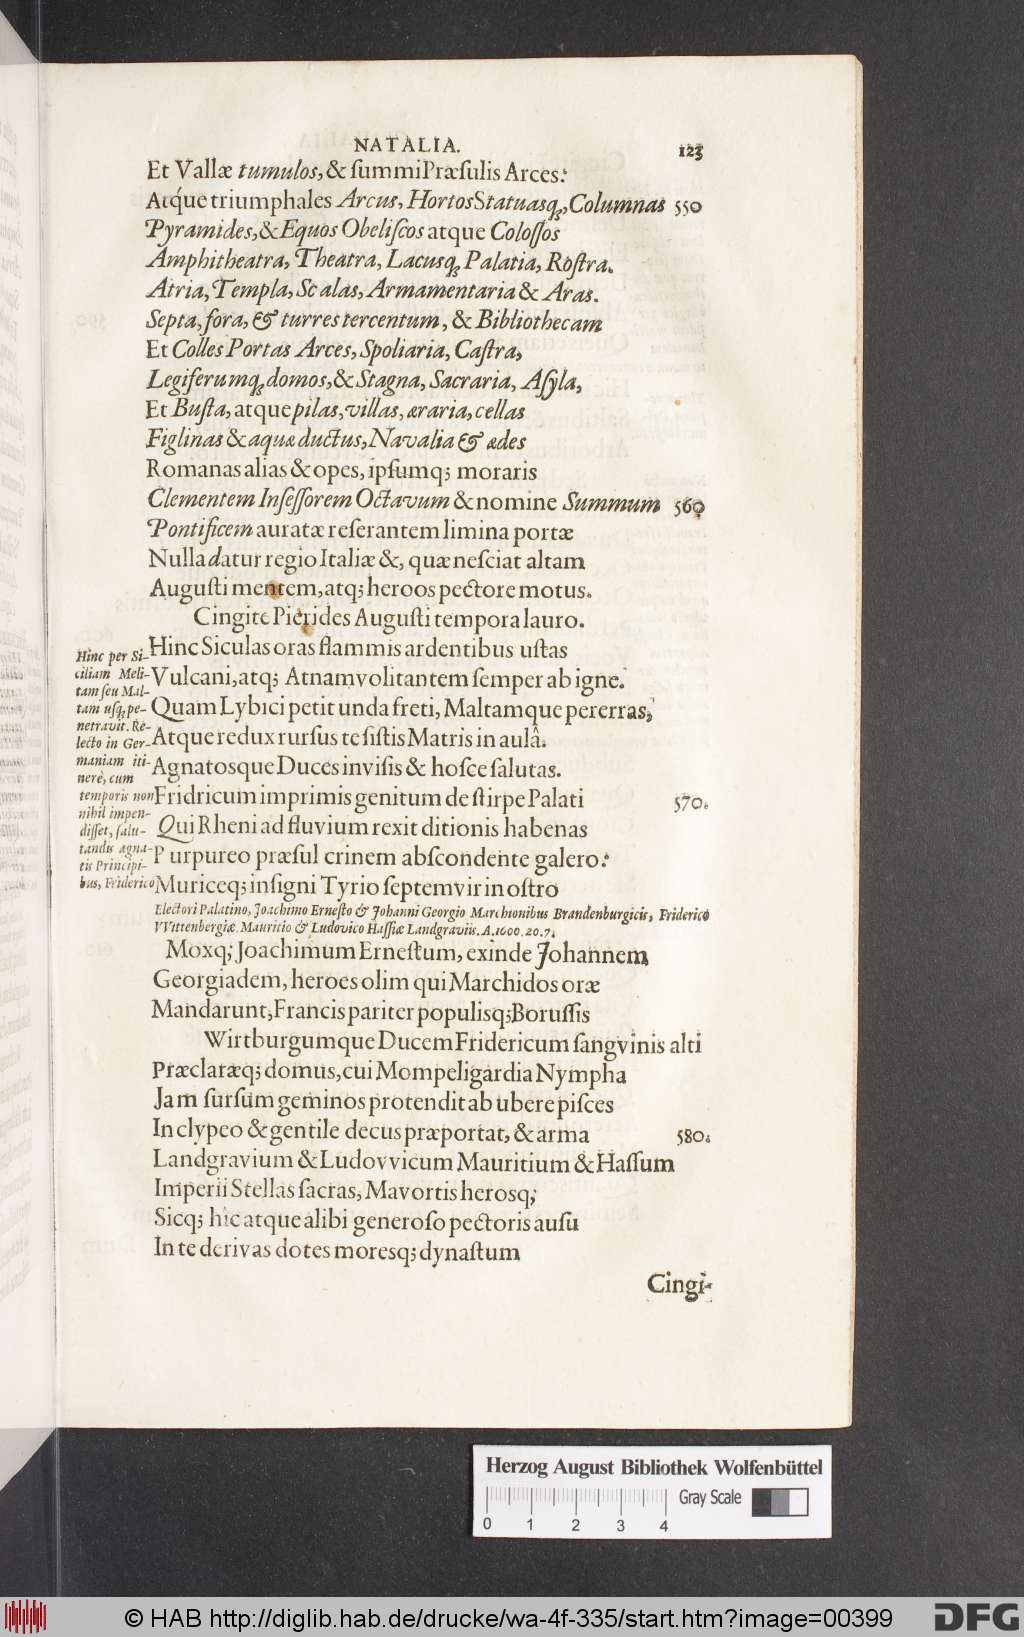 NATALIA. 123
Et Vallæ tumulos, & ſummi Præſulis Arces:
Atque triumphales Arcus, Hortos Statuasq;, Columnas 550
Pyramides, & Equos Obeliſcos atque Coloſſos
Amphitheatra, Theatra, Lacusq; Palatia, Roſtra.
Atria, Templa, Scalas, Armamentaria & Aras.
Septa, fora, & turres tercentum, & Bibliothecam
Et Colles Portas Arces, Spoliaria, Caſtra,
Legiferumq; domos, & Stagna, Sacraria, Aſyla,
Et Buſta, atque pilas, villas, æraria, cellas
Figlinas & aquæ ductus, Navalia & ædes
Romanas alias & opes, ipſumq; moraris
Clementem Inſeſſorem Octavum & nomine Summum 560
Pontificem auratæ reſerantem limina portæ
Nulla datur regio Italiæ &, quæ neſciat altam
Auguſti mentem, atq; heroos pectore motus.
Cingite Pierides Auguſti tempora lauro.
Hinc Siculas oras flammis ardentibus uſtas
Vulcani, atq; Atnam volitantem ſemper ab igne.
Quam Lybici petit unda freti, Maltamque pererras,
Atque redux rurſus te ſiſtis Matris in aulâ.
Agnatosque Duces inviſis & hoſce ſalutas.
Fridricum imprimis genitum de ſtirpe Palati 570.
Qui Rheni ad fluvium rexit ditionis habenas
Purpureo præſul crinem abſcondente galero:
Muriceq; inſigni Tyrio ſeptemvir in oſtro
Hinc per Si-
ciliam Meli-
tam ſeu Mal-
tam uſq; pe-
netravit. Re-
lecto in Ger-
maniam iti-
nerè, cum
temporis non
nihil impen-
diſſet, ſalu-
tandis agna-
tis Principi-
bus, Friderico
Electori Palatino, Joachimo Erneſto & Johanni Georgio Marchionibus Brandenburgicis, Friderico
VVittenbergiæ, Mauritio & Ludovico Haſſiæ Landgraviis. A. 1600. 20. 7.
Moxq; Joachimum Erneſtum, exinde Johannem
Georgiadem, heroes olim qui Marchidos oræ
Mandarunt, Francis pariter populisq; Boruſſis
Wirtburgumque Ducem Fridericum ſangvinis alti
Præclaræq; domus, cui Mompeligardia Nympha
Jam furſum geminos protendit ab ubere piſces
In clypeo & gentile decus præportat, & arma 580.
Landgravium & Ludovvicum Mauritium & Haſſum
Imperii Stellas ſacras, Mavortis herosq;
Sicq; hic atque alibi generoſo pectoris auſu
In te derivas dotes moresq; dynaſtum
Cingi-
Herzog August Bibliothek Wolfenbüttel
Gray Scale
0 1 2 3 4
© HAB http://diglib.hab.de/drucke/wa-4f-335/start.htm?image=00399
DFG